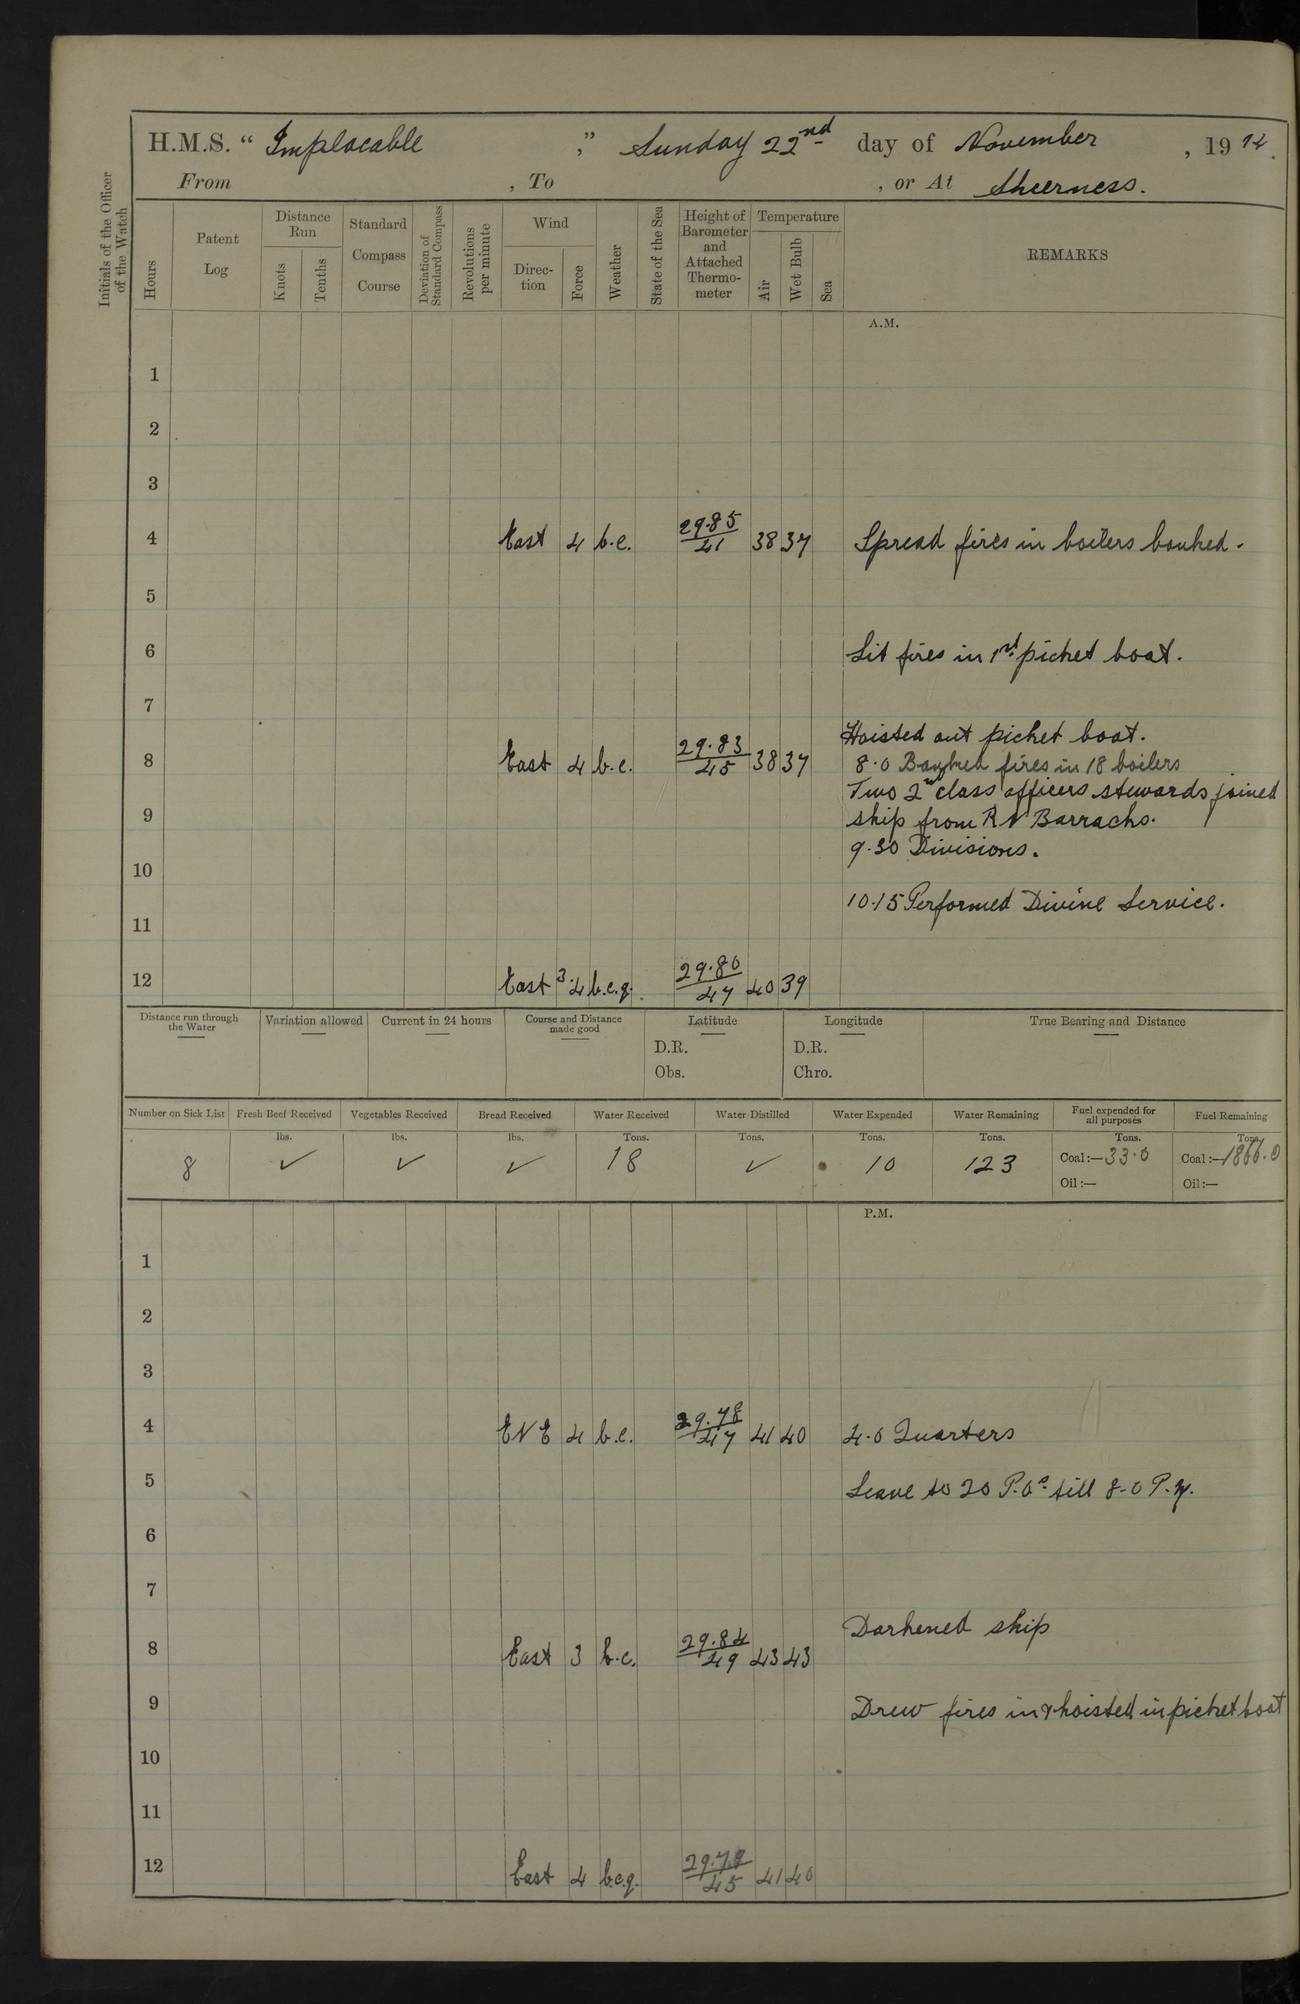 H.M.S. " Implacable ," Sunday 22nd day of November , 1914.
From , To , or At Sheerness.
Initials of the Officer of the Watch
Hours
Patent Log
Distance Run
Knots
Tenths
Standard Compass Course
Deviation of Standard Compass
Revolutions per minute
Wind
Direction
Force
Weather
State of the Sea
Height of Barometer and Attached Thermometer
Temperature
Air
Wet Bulb
Sea
REMARKS
A.M.
1
2
3
4 East 4 b.c. 29.85/41 38 37 Spread fires in boilers banked.
5
6 Lit fires in 1st picket boat.
7
Hoisted out picket boat.
8 East 4 b.c. 29.83/45 38 37 8.0 Banked fires in 18 boilers
Two 2nd class officers stewards joined
9 ship from R N Barracks.
9.30 Divisions.
10
10.15 Performed Divine Service.
11
12 East 3.4 b.c.q. 29.80/47 40 39
Distance run through the Water
Variation allowed
Current in 24 hours
Course and Distance made good
Latitude
D.R.
Obs.
Longitude
D.R.
Chro.
True Bearing and Distance
Number on Sick List
8
Fresh Beef Received
lbs.
✓
Vegetables Received
lbs.
✓
Bread Received
lbs.
✓
Water Received
Tons.
18
Water Distilled
Tons.
✓
Water Expended
Tons.
10
Water Remaining
Tons.
123
Fuel expended for all purposes
Tons.
Coal:—33.0
Oil:—
Fuel Remaining
Tons.
Coal:—1866.0
Oil:—
P.M.
1
2
3
4 ENE 4 b.c. 29.78/47 41 40 4.0 Quarters
5 Leave to 20 P.Os till 8-0 P.M.
6
7
Darkened ship
8 East 3 b.c. 29.84/49 43 43
9 Drew fires in & hoisted in picket boat
10
11
12 East 4 b.c.q. 29.79/45 41 40